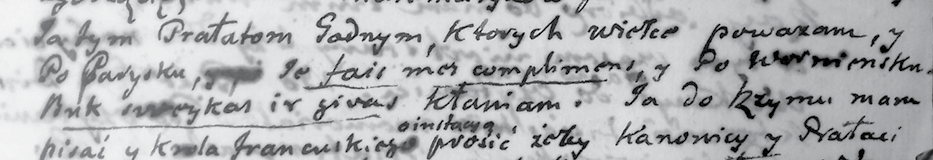 Ia tym Prałatom Godnym, ktorych wielce powazam, y
Po Parysku, Je fais mes complimens, y Po Worniensku
Buk sweykas ir givas kłaniam. Ia do Rzymu mam
o instacyą
pisać y Krola francuskiego prosić żeby Kanonicy y Prałaci